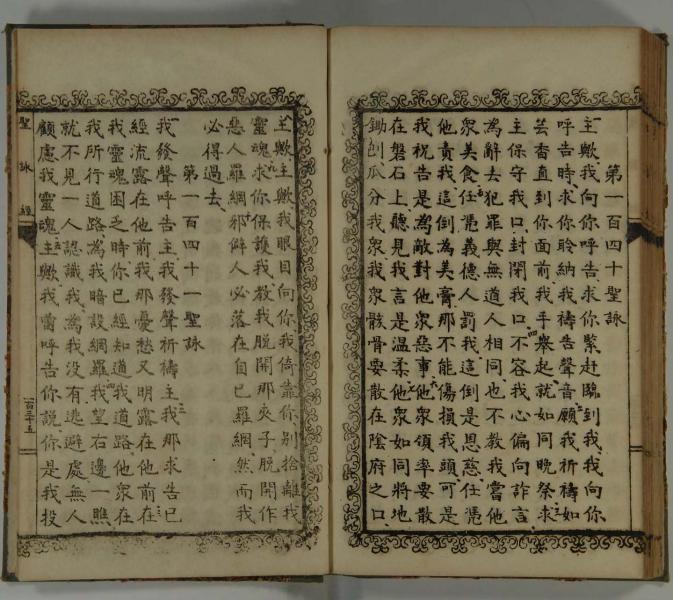 第一百四十聖詠
主歟我向你呼告求你緊赶臨到我我向你
呼告時求你聆納我禱告聲音願我祈禱如
芸香直到你面前我手舉起就如同晩祭求
主保守我口封閉我口不容我心偏向詐言
為辭去犯罪與無道人相同也不教我當他
衆美食任憑義德人罰我這倒是恩慈任憑
他責我這倒為美膏那不能傷損我頭可是
我祝告是為敵對他衆惡事他衆領率要散
在磐石上聽見我言是溫柔他衆如同將地
鋤刨瓜分我衆我衆骸骨要散在陰府之口
主歟主歟我眼目向你我倚靠你别捨離我
靈魂求你保護我教我脱開那夾子脱開作
惡人羅網邪僻人必落在自己羅網然而我
必得過去
第一百四十一聖詠
我發聲呼告主我發聲祈禱主我那求告已
經流露在他前我那憂愁又明露在他前在
我靈魂困乏時你已經知道我道路他衆在
我所行道路為我暗設網羅我望右邊一瞧
就不見一人認識我為我没有逃避處無人
顧慮我靈魂主歟我嘗呼告你說你是我投
聖詠經
一百三十五